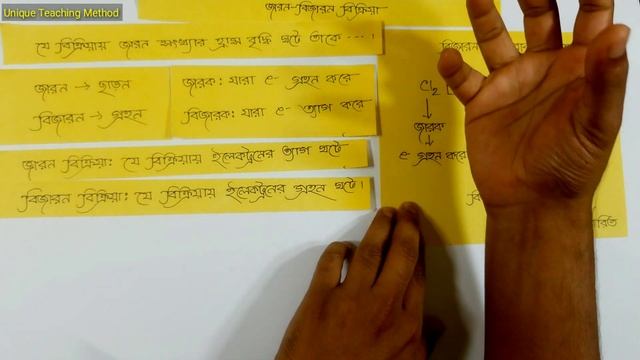 Unique Teaching Method
জারন-বিজারন বিক্রিয়া
যে বিক্রিয়ায় জারন সংখ্যার হ্রাস বৃদ্ধি ঘটে তাকে ---।
জারন → ছাড়ন
বিজারন → গ্রহন
জারক: যারা e- গ্রহন করে
বিজারক: যারা e- ত্যাগ করে
জারন বিক্রিয়া: যে বিক্রিয়ায় ইলেকট্রনের ত্যাগ ঘটে।
বিজারন বিক্রিয়া: যে বিক্রিয়ায় ইলেকট্রনের গ্রহন ঘটে।
বিজারন
Cl₂
↓
জারক
↓
e- গ্রহন করে